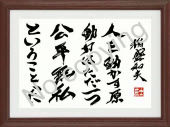 稲盛和夫
人を動かす原
動力はただ一つ
公平無私
ということだ